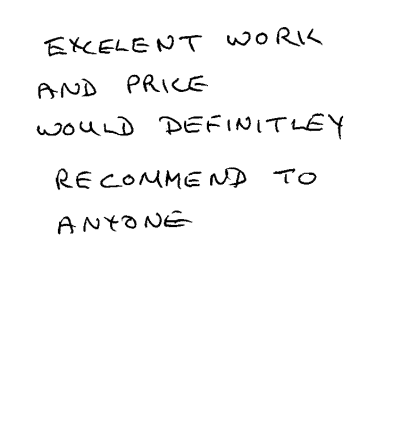 EXCELENT WORK
AND PRICE
WOULD DEFINITLEY
RECOMMEND TO
ANYONE